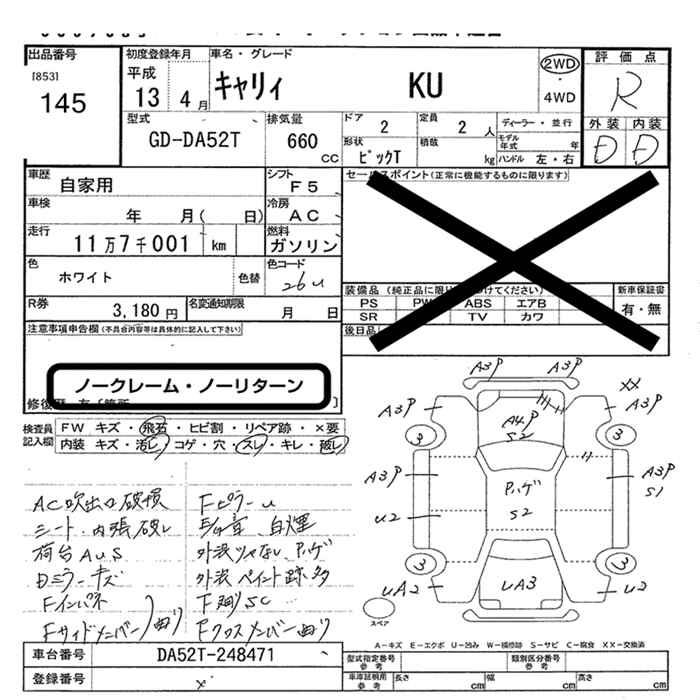 出品番号
[853]
145
初度登録年月
平成
13 4月
車名・グレード
キャリィ KU
2WD
4WD
評価点
R
外装 内装
D D
型式
GD-DA52T
排気量
660 CC
ドア
2
定員
2 人
ディーラー・並行
モデル年式 年
形状
ピックT
積載
kg
ハンドル 左・右
車歴
自家用
シフト
F5
車検
年 月( 日)
冷房
AC
走行
11万7千001 km
燃料
ガソリン
色
ホワイト
色替
色コード
26U
R券
3,180円
名変通知期限
月 日
セールスポイント(正常に機能するものに限ります)
装備品(純正品に限り けてください)
PS PW ABS エアB
SR TV カワ
新車保証書
有・無
後日品
注意事項申告欄(不具合内容等は具体的に記入して下さい)
ノークレーム・ノーリターン
検査員記入欄
FW キズ・飛石・ヒビ割・リペア跡・×要
内装 キズ・汚レ・コゲ・穴・スレ・キレ・破レ
AC吹出口破損
シート・内張破レ
荷台AUS
Dミラーキズ
Fインパネ
Fサイドメンバー曲り
FピラーU
白煙
外装ペイント跡多
F廻りSC
Fクロスメンバー曲り
A3P A3P
XX
A3P A3P
A4P
S2
3 3
A3P
ハゲ
A3P
S1
U2
S2
3 3
UA2
UA3
U2
スペア
A-キズ E-エクボ U-凹み W-補修跡 S-サビ C-腐食 XX-交換済
車台番号
DA52T-248471
登録番号
×
型式指定番号
参考
類別区分番号
参考
車庫証明用
参考
長さ cm
幅 cm
高さ cm